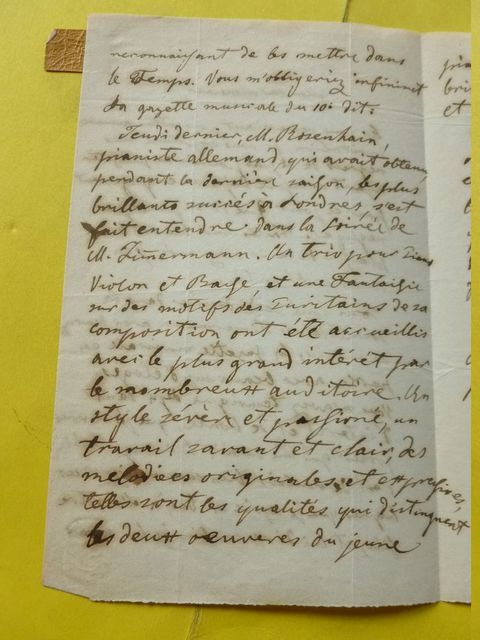 reconnaissant de les mettre dans
le Temps. Vous m'obligeriez infiniment
La gazette musicale du 10: dit:
Jeudi dernier, M. Rosenhain,
pianiste allemand, qui avait obtenu
pendant la dernière saison, les plus
brillants succès à Londres s'est
fait entendre dans la soirée de
M. Zimermann. Un trio pour Piano
Violon et Basse, et une Fantaisie
sur des motifs des Puritains de sa
composition ont été accueillis
avec le plus grand intérêt par
le nombreux auditoire. Un
style sévère et passioné, un
travail savant et clair, des
mélodiees originales et expressives,
telles sont les qualités qui distinguent
les deux oeuveres du jeune
et